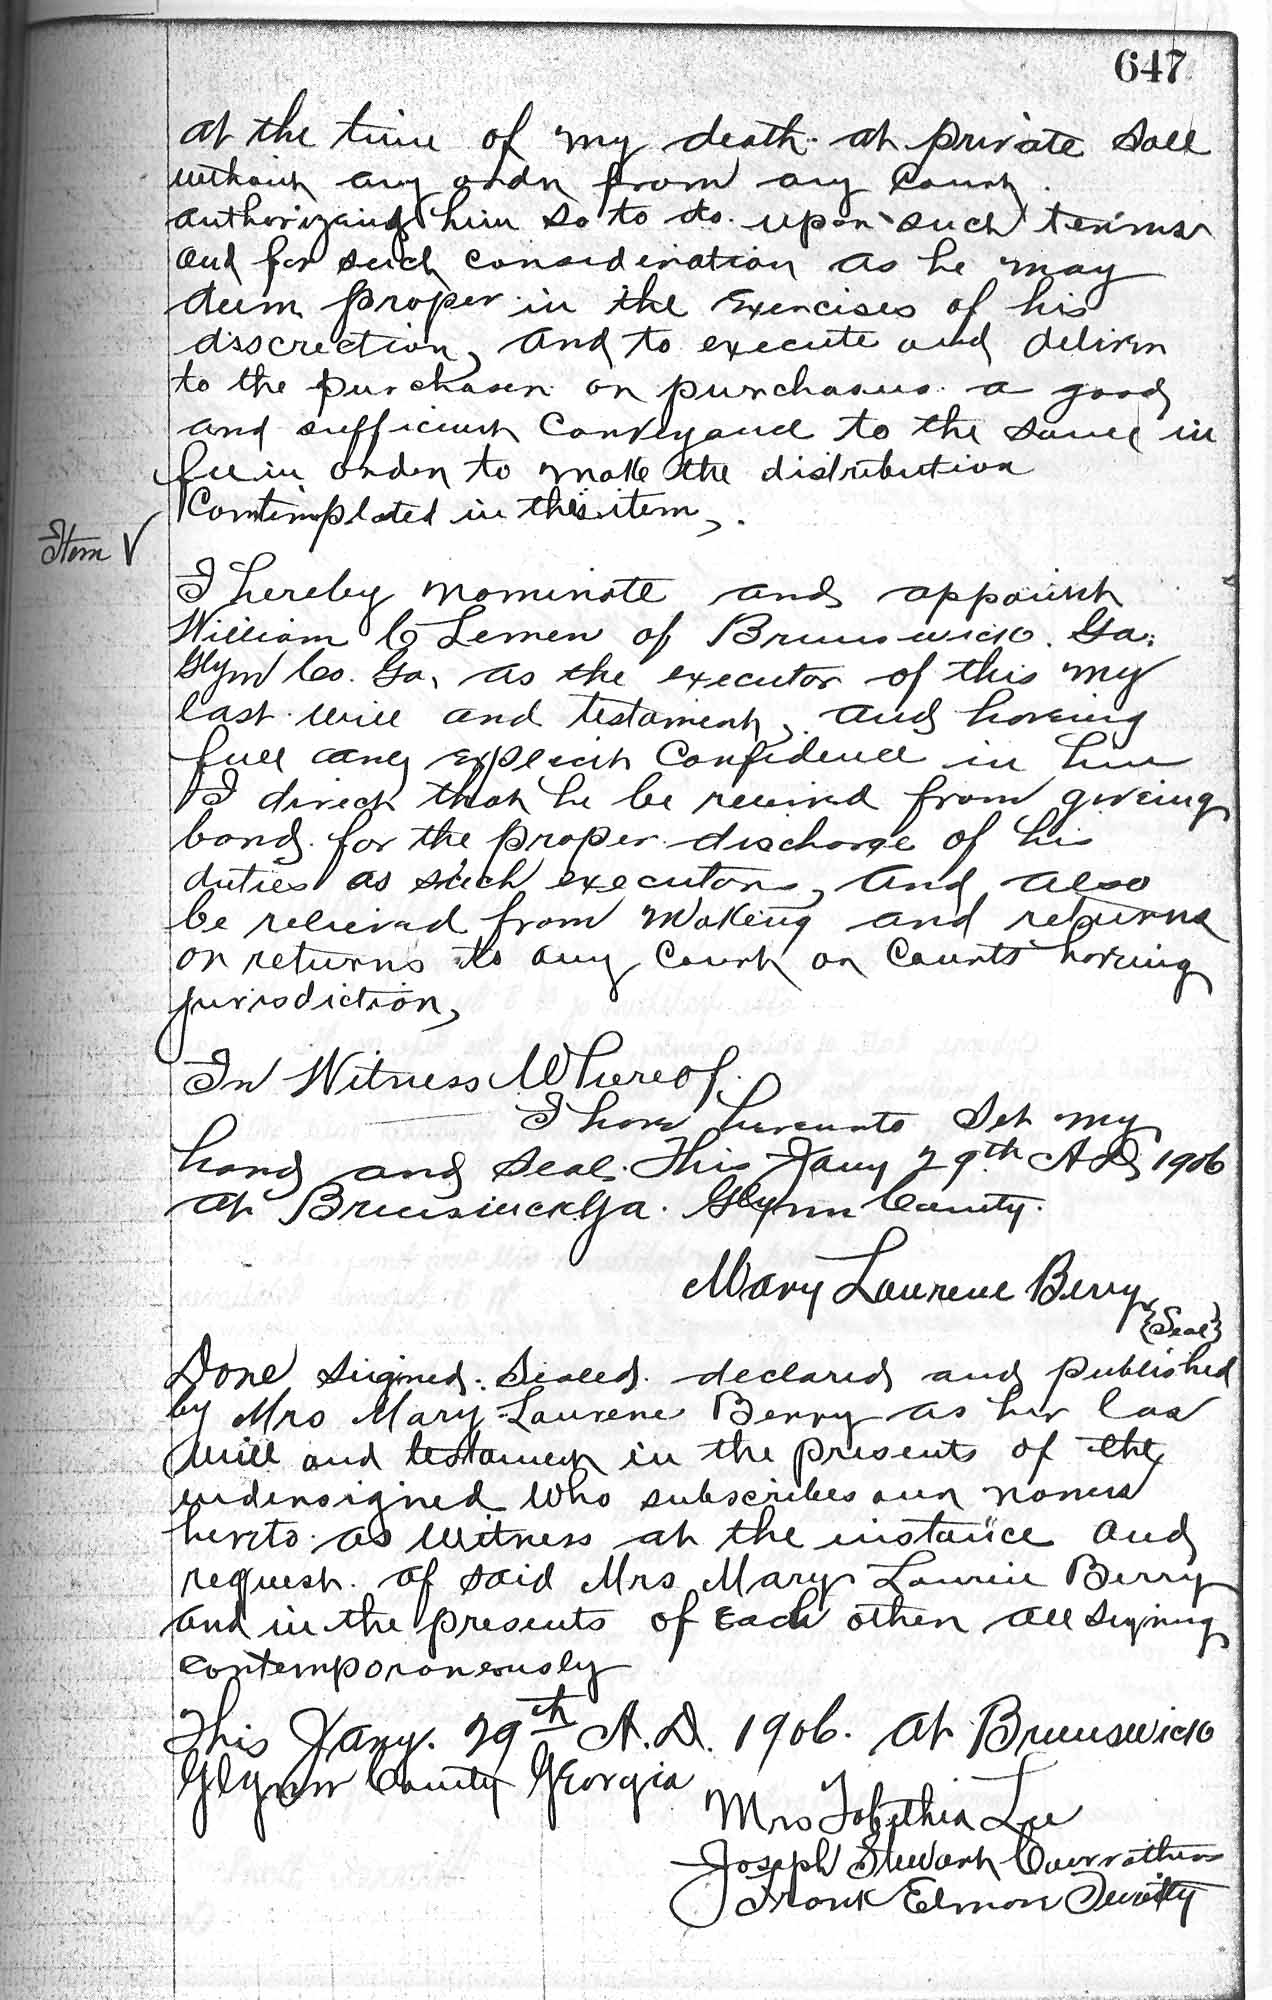 647
at the time of my death at private sale
without any order from any Court
authorizing him so to do. upon such terms
and for such consideration as he may
deem proper in the Exercises of his
disscrection, and to execute and deliver
to the purchaser or purchasers a good
and sufficient Conveyance to the same in
fee in order to make the distribution
Contimplated in this item,
Item V
I hereby nominate and appoint
William C Lemen of Brunswick. Ga.
Glyn Co. Ga. as the executor of this my
last will and testament, and having
full and explicit Confidence in him
I direct that he be relieved from giveing
bond for the proper discharge of his
duties as such executors, and also
be relieved from making and returns
or returns to any Court or Courts having
jurisdiction,
In Witness Whereof.
I have hereunto Set my
hand and Seal. This Jany 29th AD 1906
at Brunswick Ga. Glynn County.
Mary Laurene Berry
{Seal}
Done Signed. Sealed. declared and published
by Mrs Mary Laurene Berry as her las
will and testament in the presents of the
undersigned Who subscribes our names
hereto as Witness at the instance and
request of said Mrs Mary Laurene Berry
and in the presents of Each other all signing
contemporaneously
This Jany. 29th A.D. 1906. at Brunswick
Glynn County Georgia
Mrs Tabithia Lee
Joseph Stewart
Frank Elmore Twitty